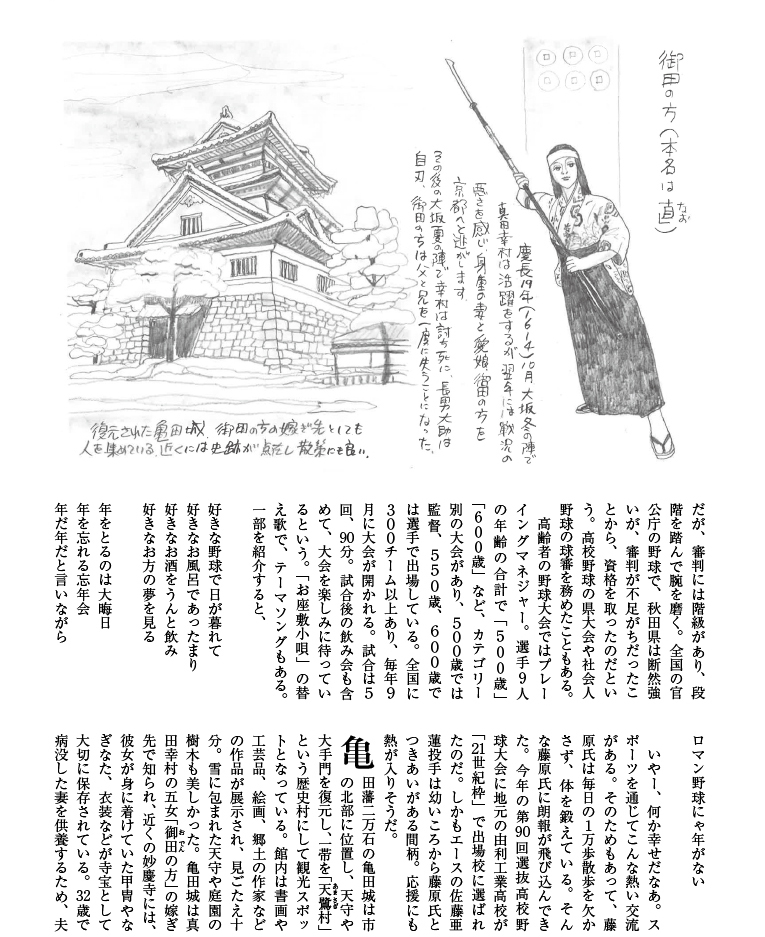 御田の方(本名は 直)
なお
慶長19年(1614)10月 大坂冬の陣で
真田幸村は活躍をするが、翌年には戦況の
悪さを感じ、身重の妻と愛娘・御田の方を
京都へと逃がします。
その後の大坂夏の陣で幸村は討ち死に、長男大助は
自刃、御田の方は父と兄を一度に失うことになった。
復元された亀田城、御田の方の嫁ぎ先としても
人を集めている。近くには史跡が点在し散策にも良い。
だが、審判には階級があり、段
階を踏んで腕を磨く。全国の官
公庁の野球で、秋田県は断然強
いが、審判が不足がちだったこ
とから、資格を取ったのだとい
う。高校野球の県大会や社会人
野球の球審を務めたこともある。
高齢者の野球大会ではプレー
イングマネジャー。選手9人
の年齢の合計で「500歳」
「600歳」など、カテゴリー
別の大会があり、500歳では
監督、550歳、600歳で
は選手で出場している。全国に
300チーム以上あり、毎年9
月に大会が開かれる。試合は5
回、90分。試合後の飲み会も含
めて、大会を楽しみに待ってい
るという。「お座敷小唄」の替
え歌で、テーマソングもある。
一部を紹介すると、
好きな野球で日が暮れて
好きなお風呂であったまり
好きなお酒をうんと飲み
好きなお方の夢を見る
年をとるのは大晦日
年を忘れる忘年会
年だ年だと言いながら
ロマン野球にゃ年がない
いやー、何か幸せだなあ。ス
ポーツを通じてこんな熱い交流
がある。そのためもあって、藤
原氏は毎日の1万歩散歩を欠か
さず、体を鍛えている。そん
な藤原氏に朗報が飛び込んでき
た。今年の第90回選抜高校野
球大会に地元の由利工業高校が
「21世紀枠」で出場校に選ばれ
たのだ。しかもエースの佐藤亜
蓮投手は幼いころから藤原氏と
つきあいがある間柄。応援にも
熱が入りそうだ。
亀田藩二万石の亀田城は市
の北部に位置し、天守や
大手門を復元し、一帯を「天鷺村」
あまさぎ
という歴史村にして観光スポッ
トとなっている。館内は書画や
工芸品、絵画、郷土の作家など
の作品が展示され、見ごたえ十
分。雪に包まれた天守や庭園の
樹木も美しかった。亀田城は真
田幸村の五女「御田の方」の嫁ぎ
おでん
先で知られ、近くの妙慶寺には、
彼女が身に着けていた甲冑やな
ぎなた、衣装などが寺宝として
大切に保存されている。32歳で
病没した妻を供養するため、夫